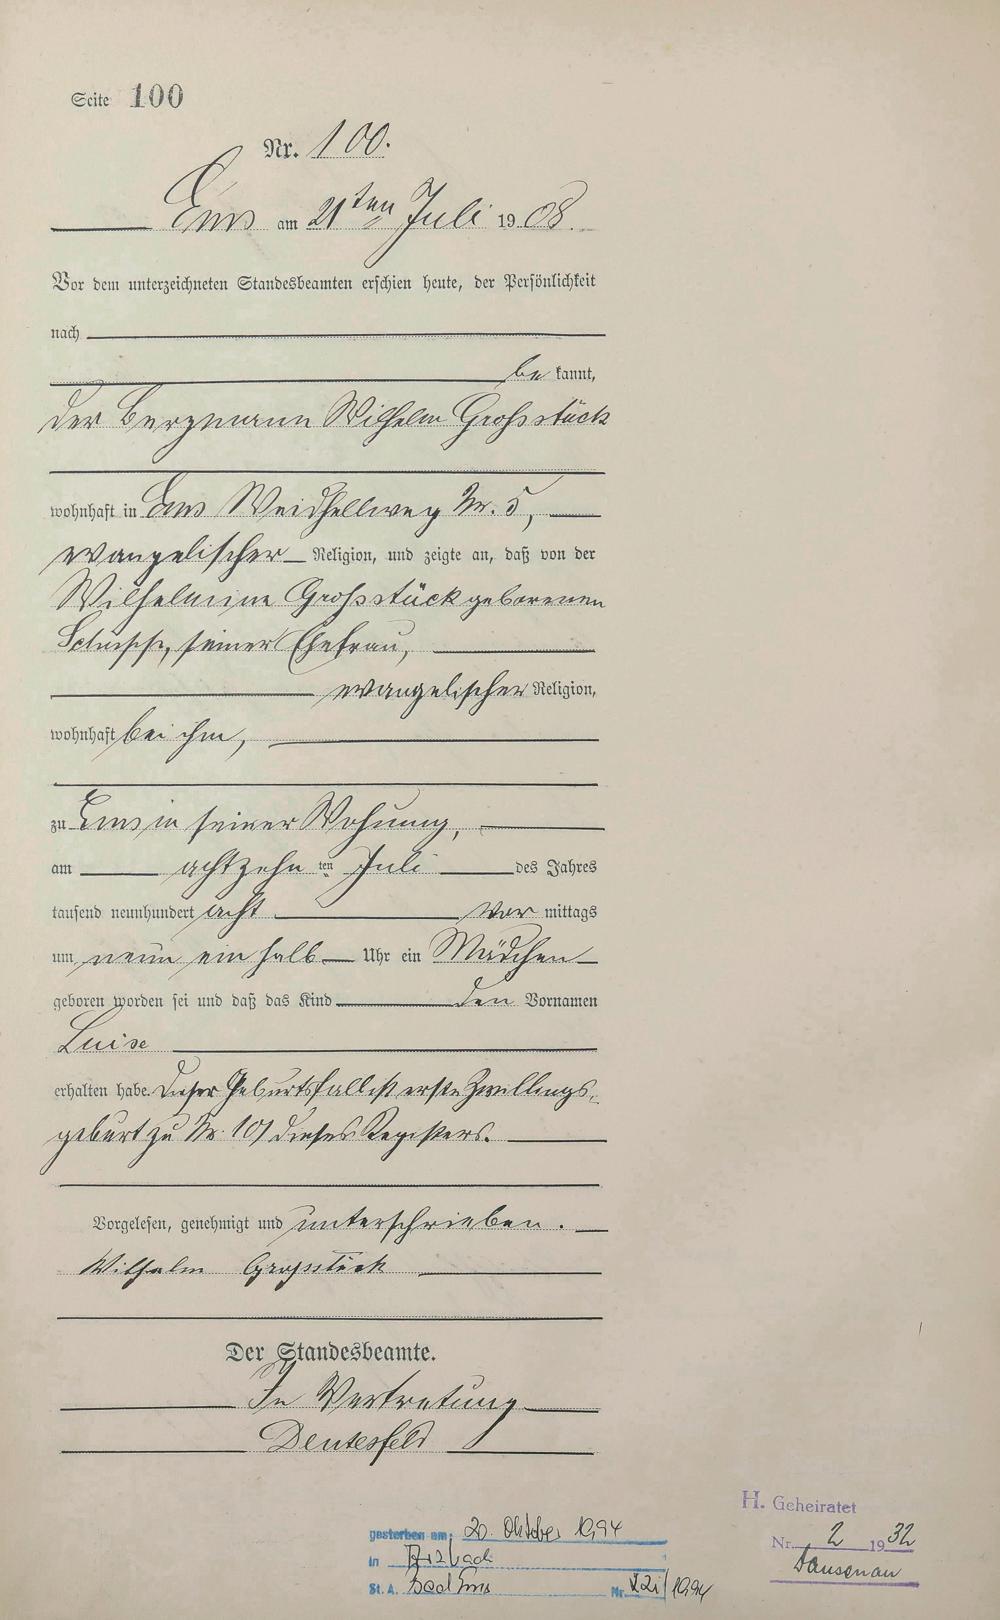 Seite 100
Nr. 100.
Ems am 21ten Juli 1908.
Vor dem unterzeichneten Standesbeamten erschien heute, der Persönlichkeit
nach
be kannt,
der Bergmann Wilhelm Großstück
wohnhaft in Ems Weidhellweg Nr. 5,
evangelischer Religion, und zeigte an, daß von der
Wilhelmine Großstück geborenen
seiner Ehefrau,
evangelischer Religion,
wohnhaft bei ihm,
zu Ems in seiner Wohnung,
am achtzehn ten Juli des Jahres
tausend neunhundert acht Vor mittags
um neun ein halb Uhr ein Mädchen
geboren worden sei und daß das Kind den Vornamen
Luise
erhalten habe. Dieser Geburtsfall ist erste Zwillings-
geburt zu Nr. 101 dieses Registers.
Vorgelesen, genehmigt und unterschrieben.
Wilhelm Großstück
Der Standesbeamte.
In Vertretung
Deutesfeld
gestorben am: 20. Oktober 1994
in Arzbach
St. A. Bad Ems Nr. /1994
H. Geheiratet
Nr. 2 1932
Dausenau